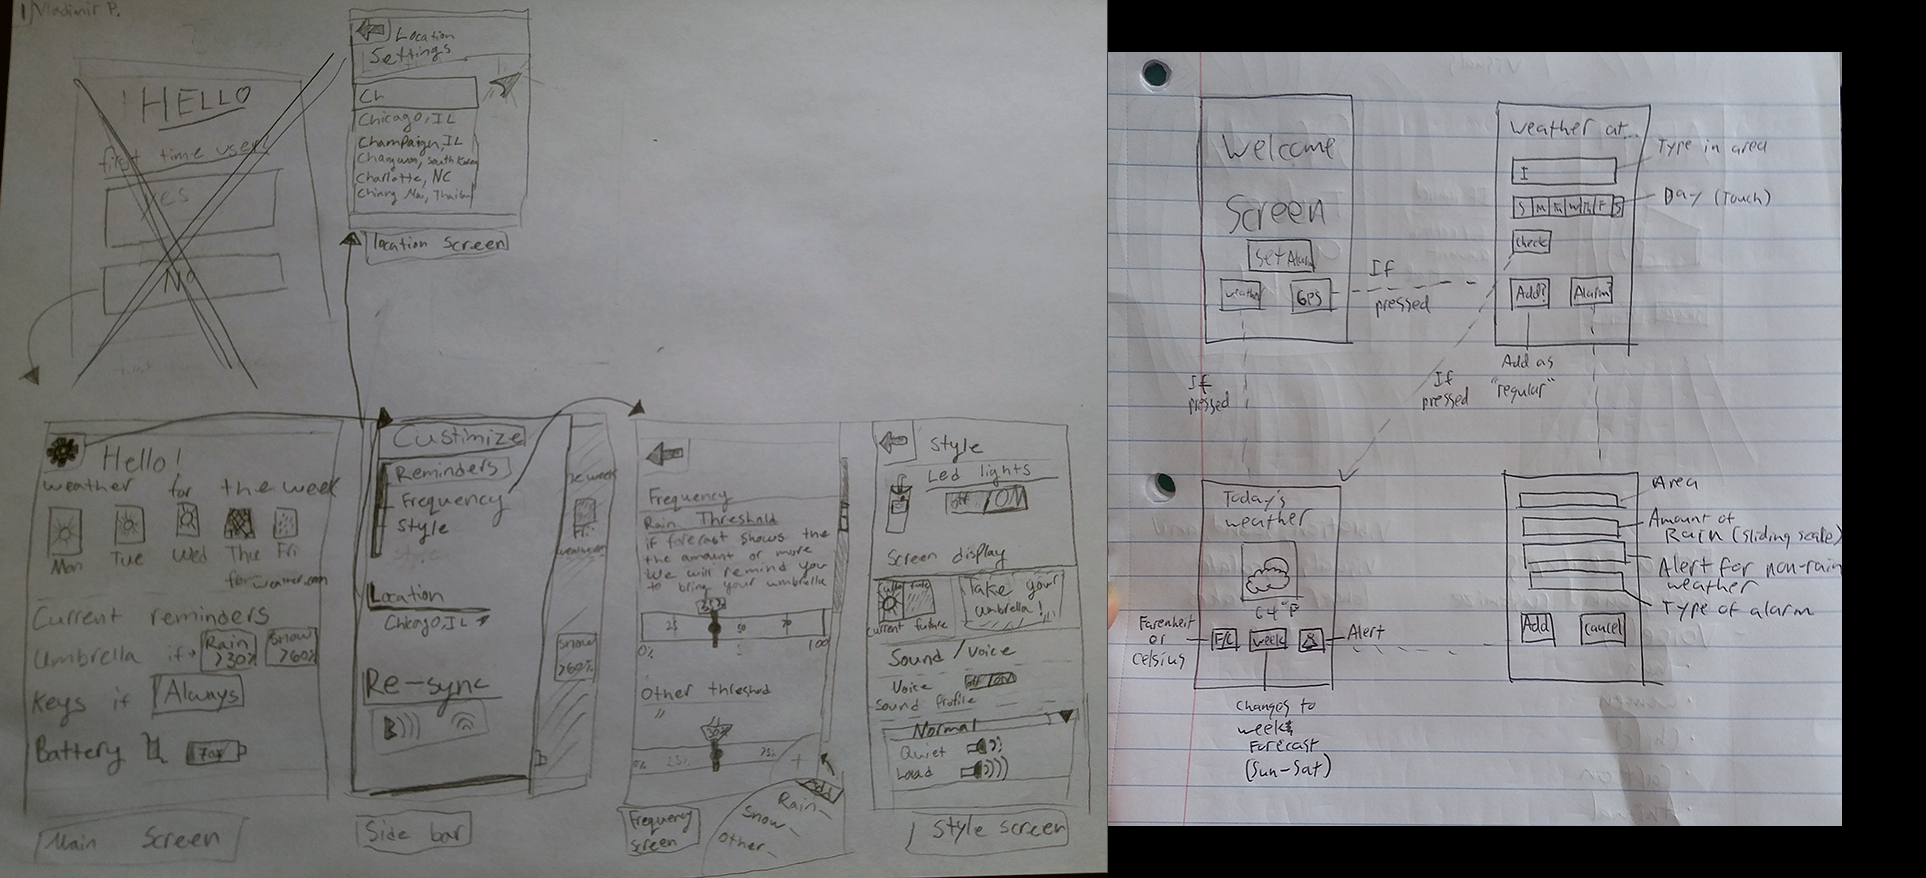 1/Vladimir P.
HELLO
first time user?
Yes
No
Location
Settings
Ch
Chicago, IL
Champaign, IL
Changwon, South Korea
Charlotte, NC
Chiang Mai, Thailand
location screen
Hello!
weather for the week
Mon
Tue
Wed
Thu
Fri
Current reminders
Umbrella if
Rain
>30%
Snow
>60%
Keys if
Always
Battery
70%
Main Screen
Custimize
Reminders
Frequency
Style
Location
Chicago, IL
Re-sync
he week
Fri
Snow
>60%
Side bar
Frequency
Rain Threshold
if forecast shows the
the amount or more
We will remind you
to bring your umbrella
25
50
70
0%
100
Other threshold
"
30%
0%
25%
75%
+
Add
Rain
Snow
Other
Frequency
Screen
Style
Led lights
off / ON
Screen display
current
future
Take your
umbrella!
Sound / Voice
Voice
off / ON
Sound Profile
Normal
Quiet
Loud
Style screen
Welcome
Screen
Set Alarm
weather
GPS
If
pressed
If
pressed
Weather at...
I
Type in area
S M Tu W Th F S
Day (Touch)
Check
Add?
Alarm?
Add as
"regular"
If
pressed
Today's
weather
64°F
F/C
week
Alert
Farenheit
or
Celsius
Changes to
week's
Forecast
(Sun-Sat)
Area
Amount of
Rain (sliding scale)
Alert for non-rain
weather
Type of alarm
Add
Cancel